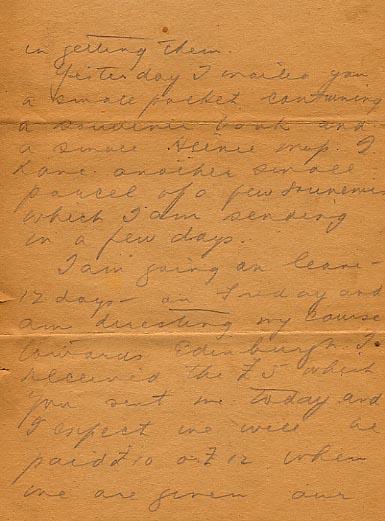 in getting them.
Yesterday I mailed you
a small packet containing
a souvenir book and
a small scenic map. I
have another small
parcel of a few souvenirs
which I am sending
in a few days.
I am going on leave -
12 days - on Friday and
am directing my course
towards Edinburgh. I
received the £5 which
you sent me today and
I expect we will be
paid £10 or £12 when
we are given our